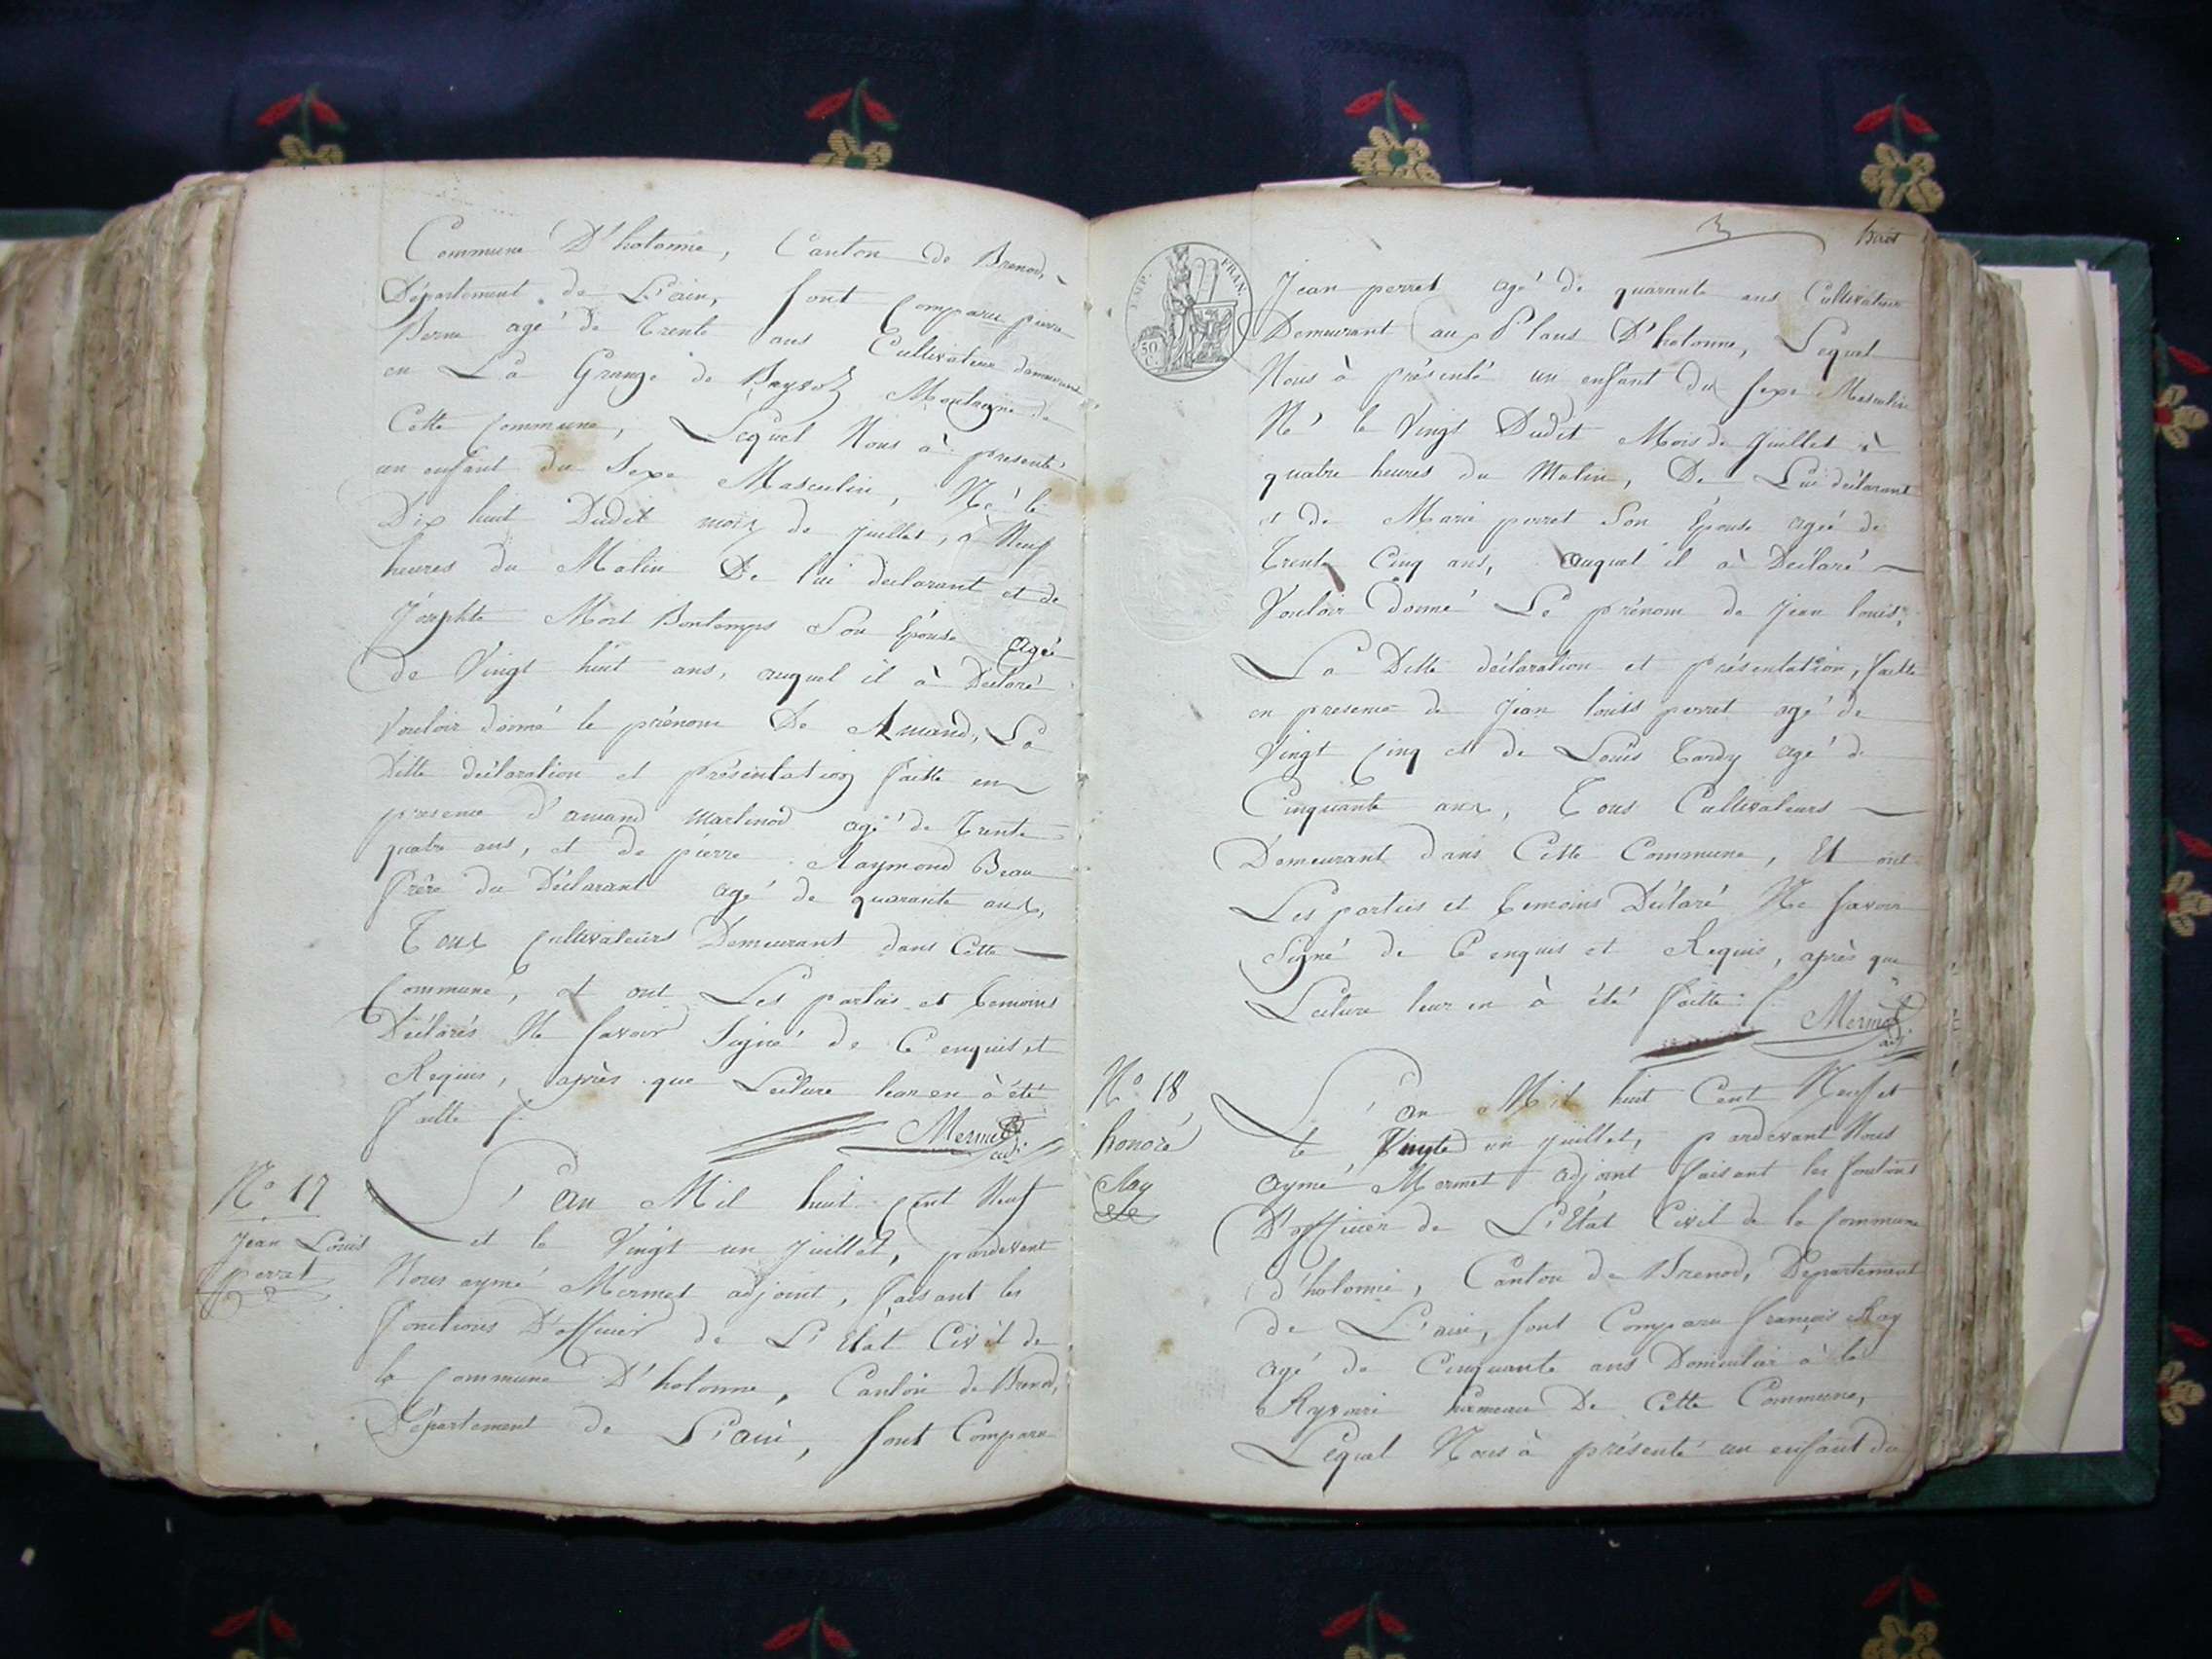 Commune D'hotonne, Canton de Brenod,
Département de L'ain, sont comparu pierre
Berne agé de Trente ans Cultivateur demeurant
en La Grange de Montagne de
Cette commune, Lequel Nous à présenté
un enfant du Sexe Masculin, Né le
Dix huit Dudit mois de juillet, à Neuf
heures du Matin De lui déclarant et de
Josephte Mort Bontemps Son Epouse Agée
de Vingt huit ans, auquel il à Déclaré
Vouloir donné le prénom De Amand, La
Ditte déclaration et présentation faitte en
presence d'amand Martinod agé de Trente
quatre ans, et de pierre Raymond Beau
frêre du Déclarant agé de quarante ans,
Tous cultivateurs Demeurant dans Cette
Commune, et ont Les parties et temoins
Déclarés Ne savoir Signé de C'enquis et
Requis, après que Lecture leur en à été
faitte /.
Mermet
adj.
N° 17
Jean Louis
perret
L'an Mil huit cent Neuf
et le Vingt un juillet, pardevant
Nous aymé Mermet adjoint, faisant les
fonctions D'officier de L'Etat Civil de
la commune D'hotonne, Canton de Brenod,
Département de L'ain, sont Comparu
huit
IMP. FRAN.
50
C.
Jean perret agé de quarante ans Cultivateur
Demeurant aux Plans D'hotonne, Lequel
Nous à présenté un enfant du sexe Masculin
Né le Vingt Dudit Mois de juillet à
quatre heures du Matin, De Lui déclarant
et de Marie perret Son Epouse agée de
Trente Cinq ans, auquel il à Déclaré
Vouloir donné Le prénom de Jean louis,
La Ditte déclaration et présentation, faitte
en presence de Jean louis perret agé de
Vingt Cinq et de Louis Tardy agé de
Cinquante ans, Tous Cultivateurs
Demeurant dans Cette Commune, Et ont
Les parties et temoins Déclaré Ne savoir
Signé de C'enquis et Requis, après que
Lecture leur en à été faitte /.
Mermet
adj.
N° 18
honoré
Ray
L'an Mil huit Cent Neuf et
le Vingt un juillet, pardevant Nous
aymé Mermet adjoint faisant les fonctions
D'officier de L'Etat Civil de la Commune
d'hotonne, Canton de Brenod, Département
de L'ain, sont Comparu françois Ray
agé de Cinquante ans Domicilié à la
hameau De Cette Commune,
Lequel Nous à présenté un enfant du